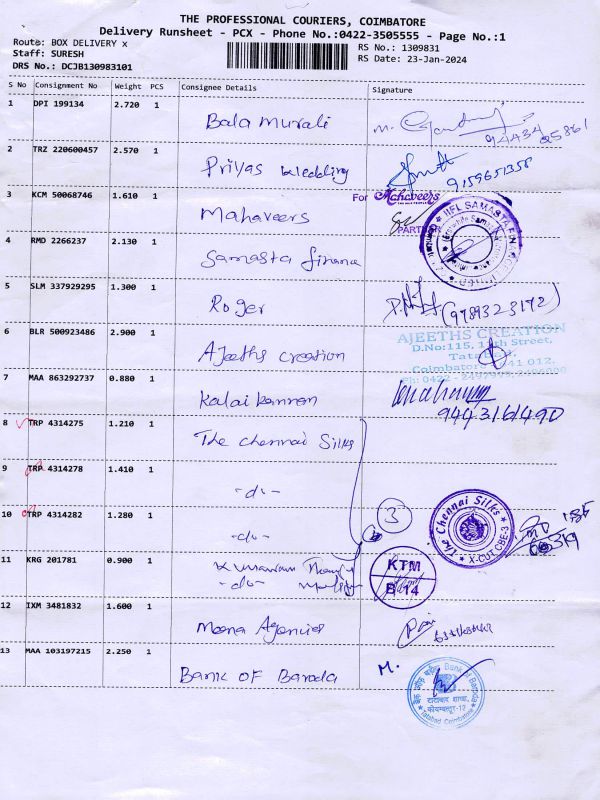 THE PROFESSIONAL COURIERS, COIMBATORE
Delivery Runsheet - PCX - Phone No.:0422-3505555 - Page No.:1
Route: BOX DELIVERY x
RS No.: 1309831
Staff: SURESH
RS Date: 23-Jan-2024
DRS No.: DCJB130983101
S No Consignment No Weight PCS Consignee Details Signature
1 DPI 199134 2.720 1 Bala murali
2 TRZ 220600457 2.570 1 Priyas wedding 9159651358
3 KCM 50068746 1.610 1 Mahaveers For Mahaveers
4 RMD 2266237 2.130 1 Samasta finance
5 SLM 337929295 1.300 1 Roger (9789323172)
6 BLR 500923486 2.900 1 Ajeeths creation
AJEETHS CREATION
D.No:115, 11th Street,
7 MAA 863292737 0.880 1 Kalai kannan 9443161490
8 TRP 4314275 1.210 1 The chennai Silks
9 TRP 4314278 1.410 1 -do-
10 TRP 4314282 1.280 1 -do- 3
The Chennai Silks
X-CUT CBE-3
11 KRG 201781 0.900 1 -do-
KTM
B 14
12 IXM 3481832 1.600 1 Meena Agencies
13 MAA 103197215 2.250 1 Bank OF Baroda M.